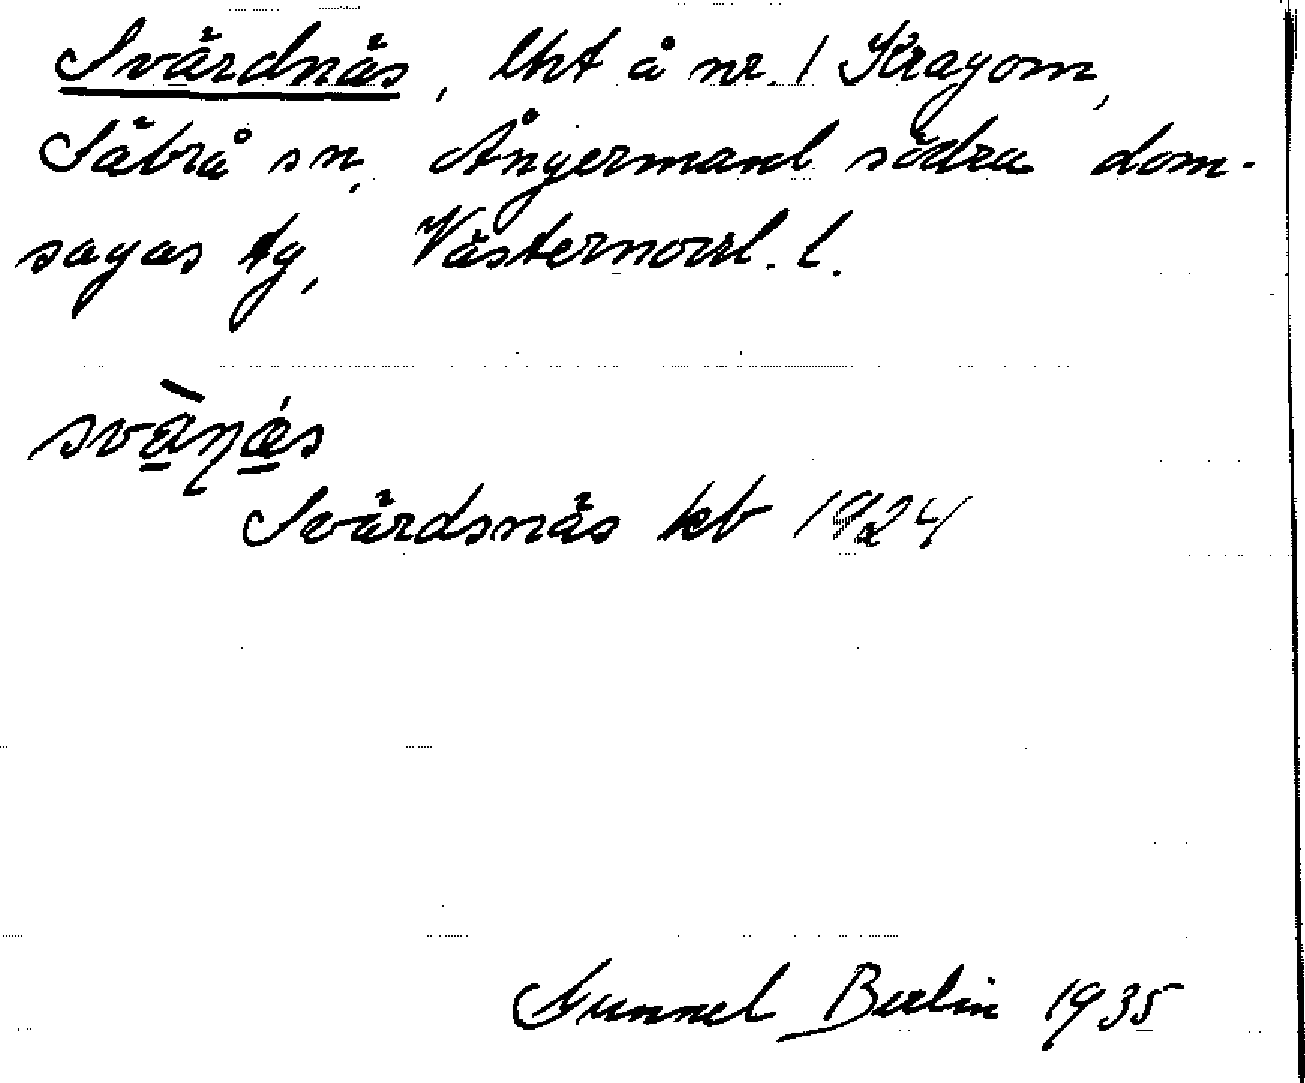 Svärdnäs, lht å nr. 1 Kragom,
Säbrå sn, Ångermanl södra dom-
sagas tg, Västernorrl. l.
Svärdsnäs kb 1924
Gunnel Berlin 1935